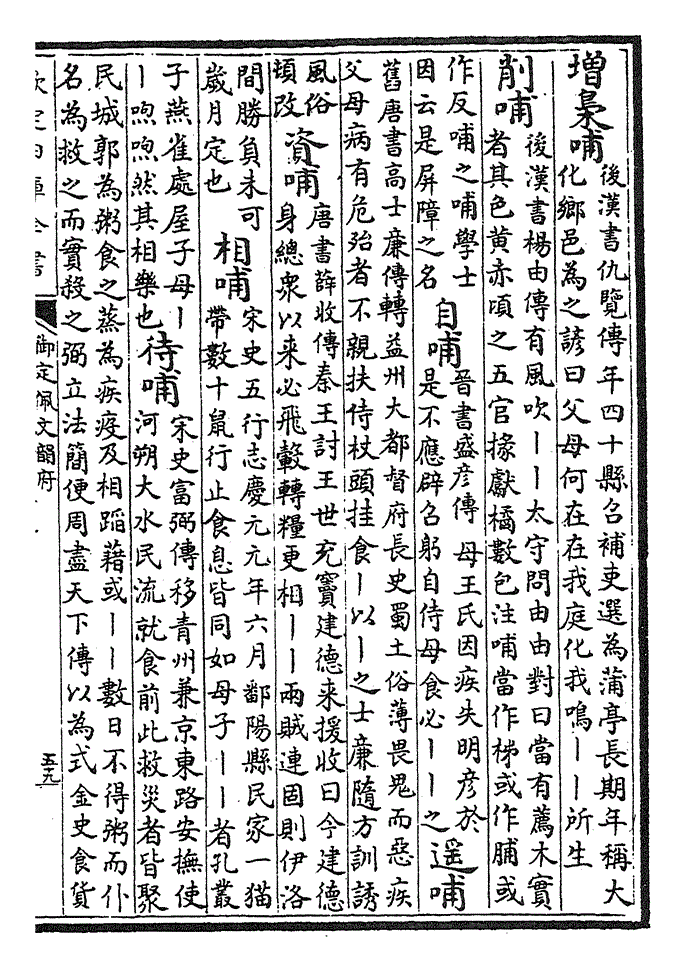 增梟哺
後漢書仇覽傳年四十縣召補吏選為蒲亭長期年稱大
化鄉邑為之諺曰父母何在在我庭化我鳴丨丨所生
削哺
後漢書楊由傳有風吹丨丨太守問由由對曰當有薦木實
者其色黄赤頃之五官掾獻橘數包注哺當作梯或作脯或
作反哺之哺學士
因云是屏障之名
自哺
晉書盛彦傳 母王氏因疾失明彦於
是不應辟召躬自侍母食必丨丨之
遥哺
舊唐書高士廉傳轉益州大都督府長史蜀土俗薄畏鬼而惡疾
父母病有危殆者不親扶侍杖頭挂食丨以丨之士廉隨方訓誘
風俗
頓改
資哺
唐書薛收傳秦王討王世充竇建德来援收曰今建德
身總衆以来必飛轂轉糧更相丨丨兩賊連固則伊洛
間勝負未可
歲月定也
相哺
宋史五行志慶元元年六月鄱陽縣民家一猫
帶數十鼠行止食息皆同如母子丨丨者孔叢
子燕雀處屋子母丨
丨喣喣然其相樂也
待哺
宋史富弼傳移青州兼京東路安撫使
河朔大水民流就食前此救災者皆聚
民城郭為粥食之蒸為疾疫及相蹈藉或丨丨數日不得粥而仆
名為救之而實殺之弼立法簡便周盡天下傳以為式金史食貨
欽定四庫全書
御定佩文韻府
五十九